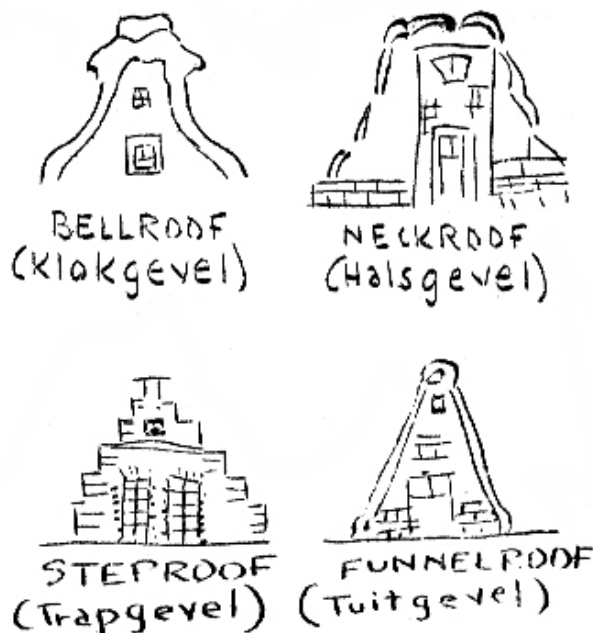 BELLROOF
(Klokgevel)
NECKROOF
(Halsgevel)
STEPROOF
(Trapgevel)
FUNNELROOF
(Tuitgevel)